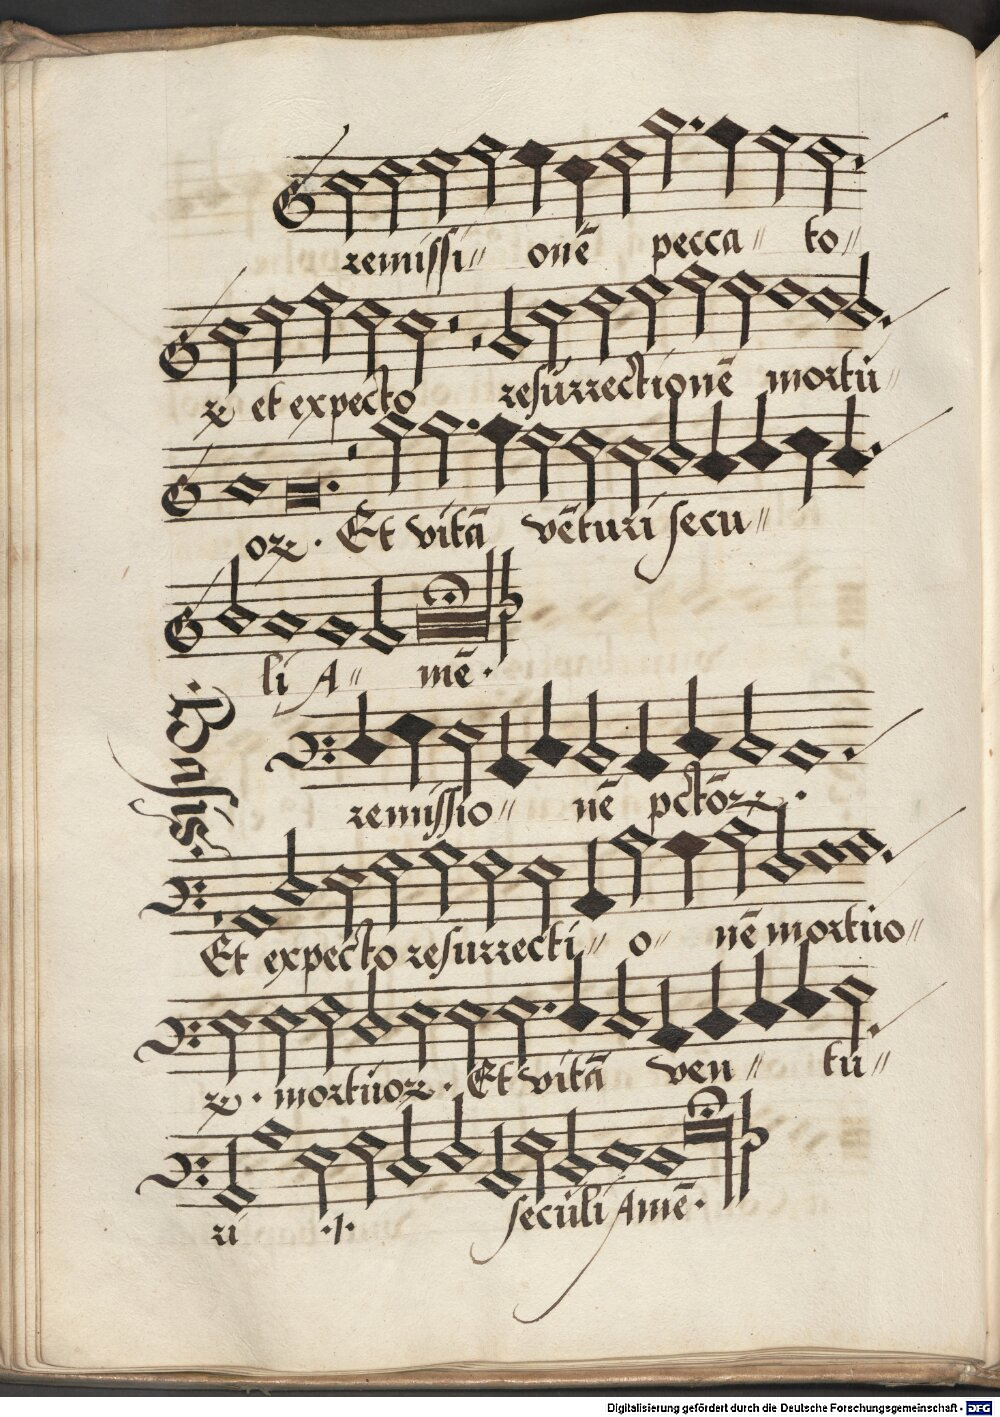 remissi〃 onē pecca〃 to〃
ꝝ et expecto resurrectionē mortu〃
oꝝ. Et vitā vēturi secu〃
li A〃 mē.
Basis.
remissio〃 nē pctōꝝ.
Et expecto resurrecti〃 o〃 nē mortuo〃
ꝝ. mortuoꝝ. Et vitā ven〃 tu〃
ri ·/· seculi Amē.
Digitalisierung gefördert durch die Deutsche Forschungsgemeinschaft - DFG